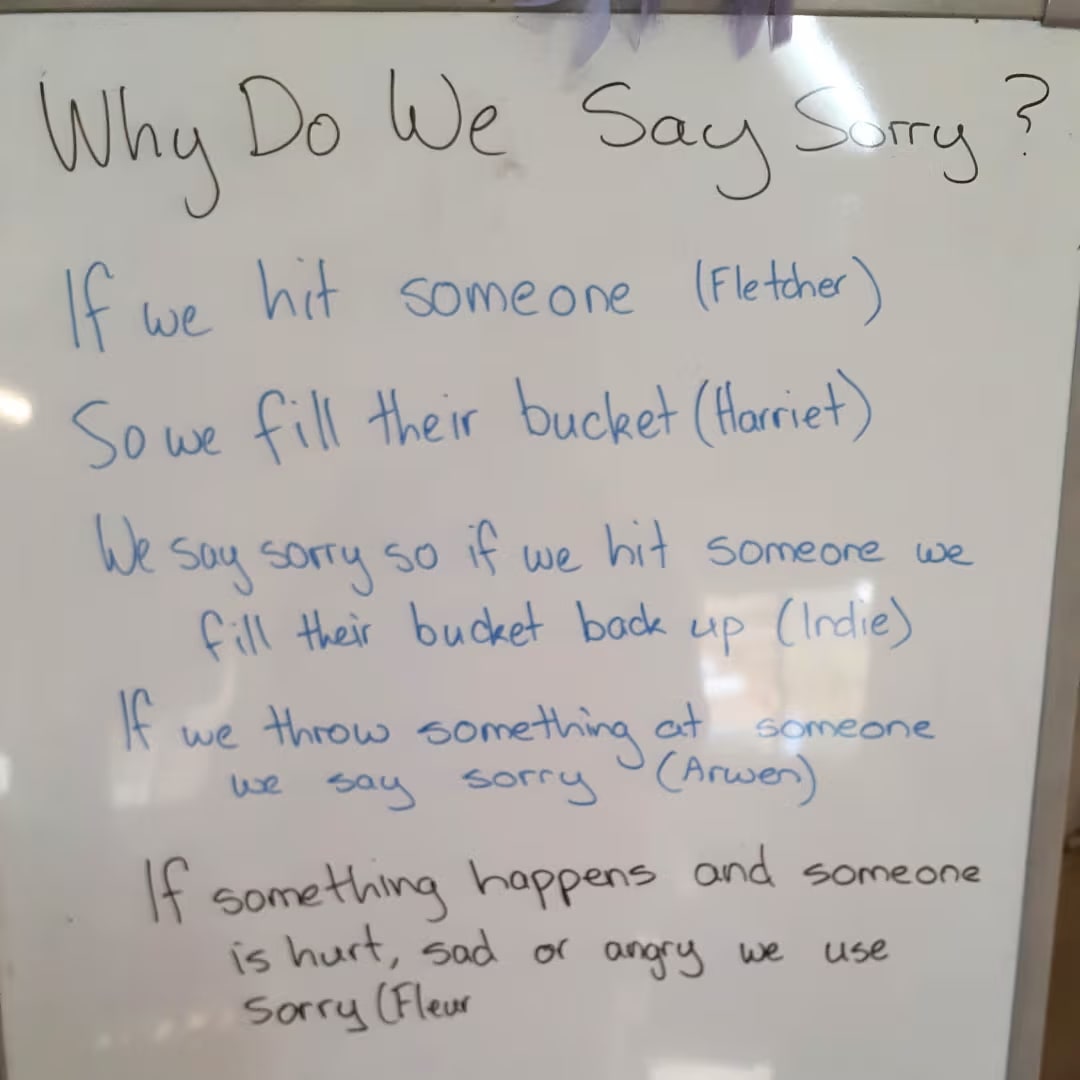 Why Do We Say Sorry?
If we hit someone (Fletcher)
So we fill their bucket (Harriet)
We say sorry so if we hit someone we
fill their bucket back up (Indie)
If we throw something at someone
we say sorry (Arwen)
If something happens and someone
is hurt, sad or angry we use
sorry (Fleur